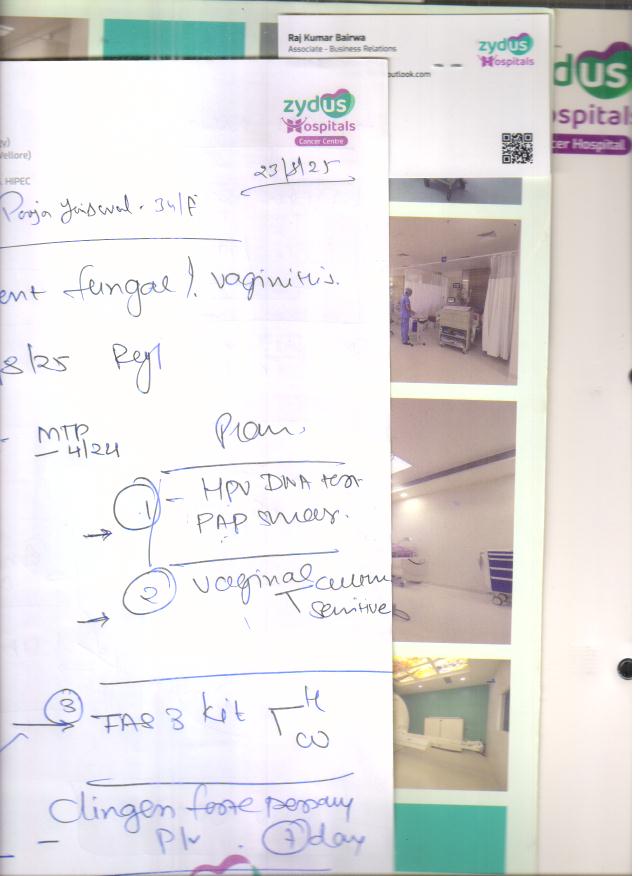 Raj Kumar Bairwa
Associate - Business Relations
outlook.com
zydus
Hospitals
zydus
Hospitals
Cancer Centre
dus
ospitals
cer Hospital
Vellore)
HIPEC
23/8/25
Pooja Jaiswal. 34/F
ent fungal / vaginitis.
8/25 Regl
MTP
4/24
Plan,
1 - HPV DNA test
PAP smear.
2 vaginal culture
sensitive
3 FAS 3 kit H
W
Clingen forte pessary
P/v . 7 day